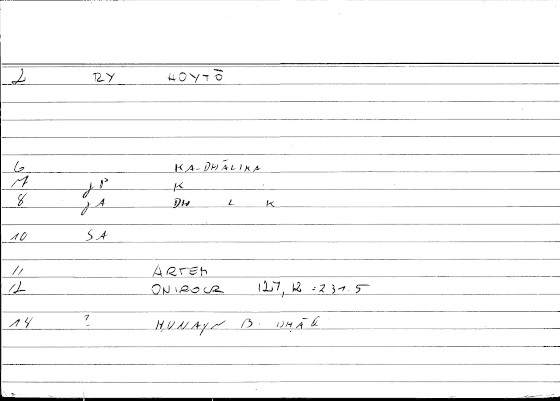 2 RY HOYTŌ
6 KA-DHĀLIKA
7 jP K
8 jA DH L K
10 SA
11 ARTEM
12 ONIROCR 127, 12 = 231.5
14 ? HUNAYN B.